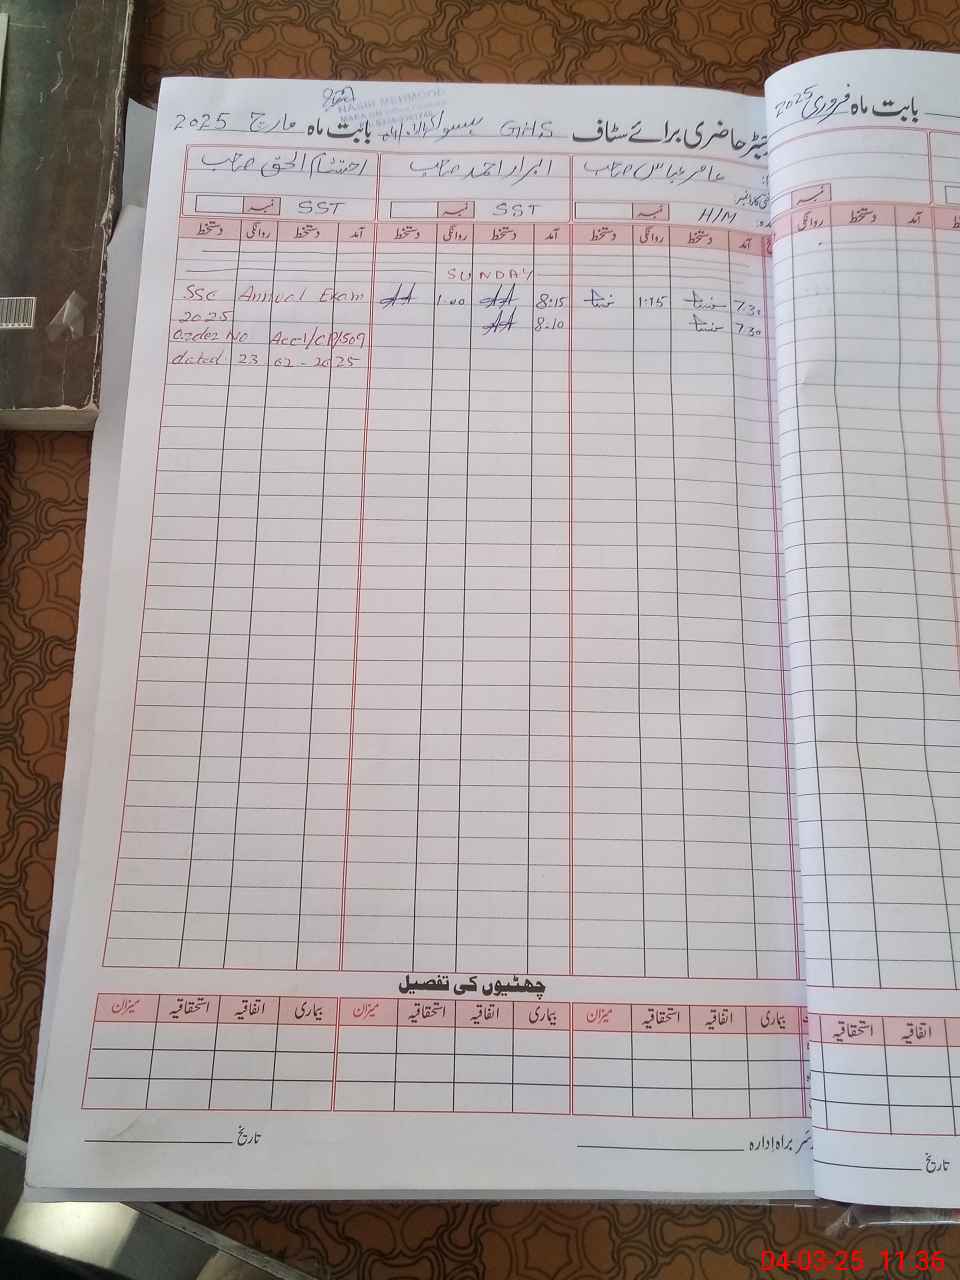 بابت ماہ فروری 2025
NASIR MEHMOOD
رجسٹر حاضری برائے سٹاف GHS بابت ماہ مارچ 2025
عامر عباس صاحب ابرار احمد صاحب احتشام الحق صاحب
H/M نمبر SST نمبر SST نمبر
آمد دستخط روانگی دستخط آمد دستخط روانگی دستخط آمد دستخط روانگی دستخط
آمد دستخط روانگی
SUNDAY
7.30 1:15 8:15 1.00 SSC Annual Exam
7.30 8.10 2025
Order No Acc-1/CP/1509
dated: 23 02-2025
چھٹیوں کی تفصیل
بیماری اتفاقیہ استحقاقیہ میزان بیماری اتفاقیہ استحقاقیہ میزان بیماری اتفاقیہ استحقاقیہ میزان
اتفاقیہ استحقاقیہ
سربراہ ادارہ تاریخ
تاریخ
04-03-25 11:36